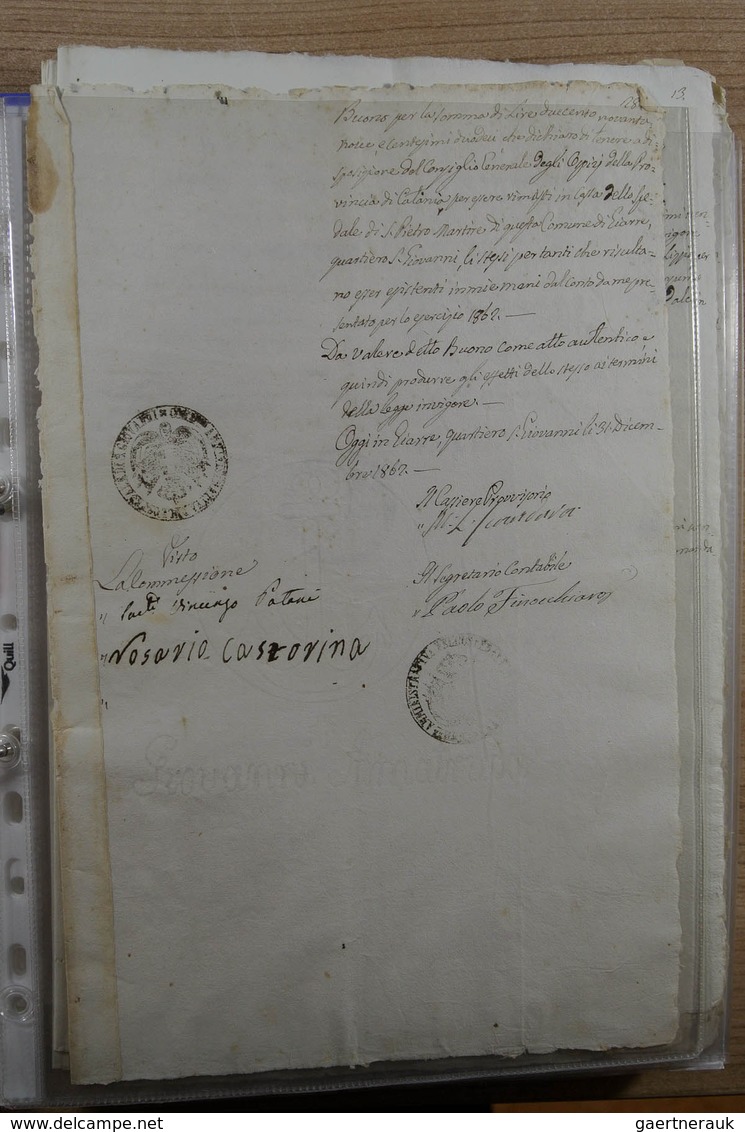 128 13.
Buono per la somma di Lire duecento novanta
nove e centesimi dodeci che dichiaro di tenere a di-
sposizione del Consiglio Generale degli Ospizi della Pro-
vincia di Catania per essere rimasti in Cassa dello Spe-
dale di S. Pietro Martire di questo Comune di Giarre,
quartiero S. Giovanni, li stessi per tanti che risulta-
no esser esistenti in mie mani dal Conto da me pre-
sentato per lo esercizio 1862.—
Da valere detto Buono come atto autentico, e
quindi produrre gli effetti dello stesso ai termini
della legge in vigore.—
Oggi in Giarre, quartiero S. Giovanni li 31 Dicem-
bre 1862.—
Il Cassiere Provvisorio
Il Segretario Contabile
" Paolo Finocchiaro
Visto
La Commessione
" Vincenzo Patanè
" Rosario Castorina
"
Quill
gaertnerauk